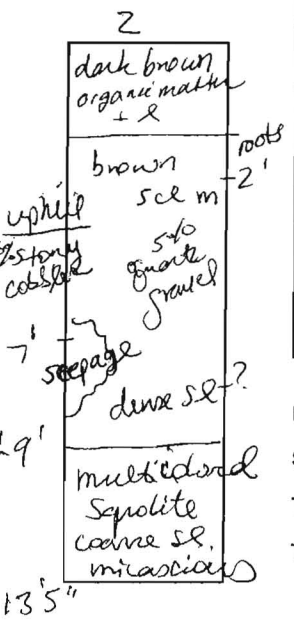 2
dark brown
organic matter
+ l
roots
brown
2'
scl m
uphill
5%
% stony
quartz
cobbles
gravel
7'
seepage
dense sl ?
9'
multicolored
Saprolite
coarse sl.
micascious
13'5"